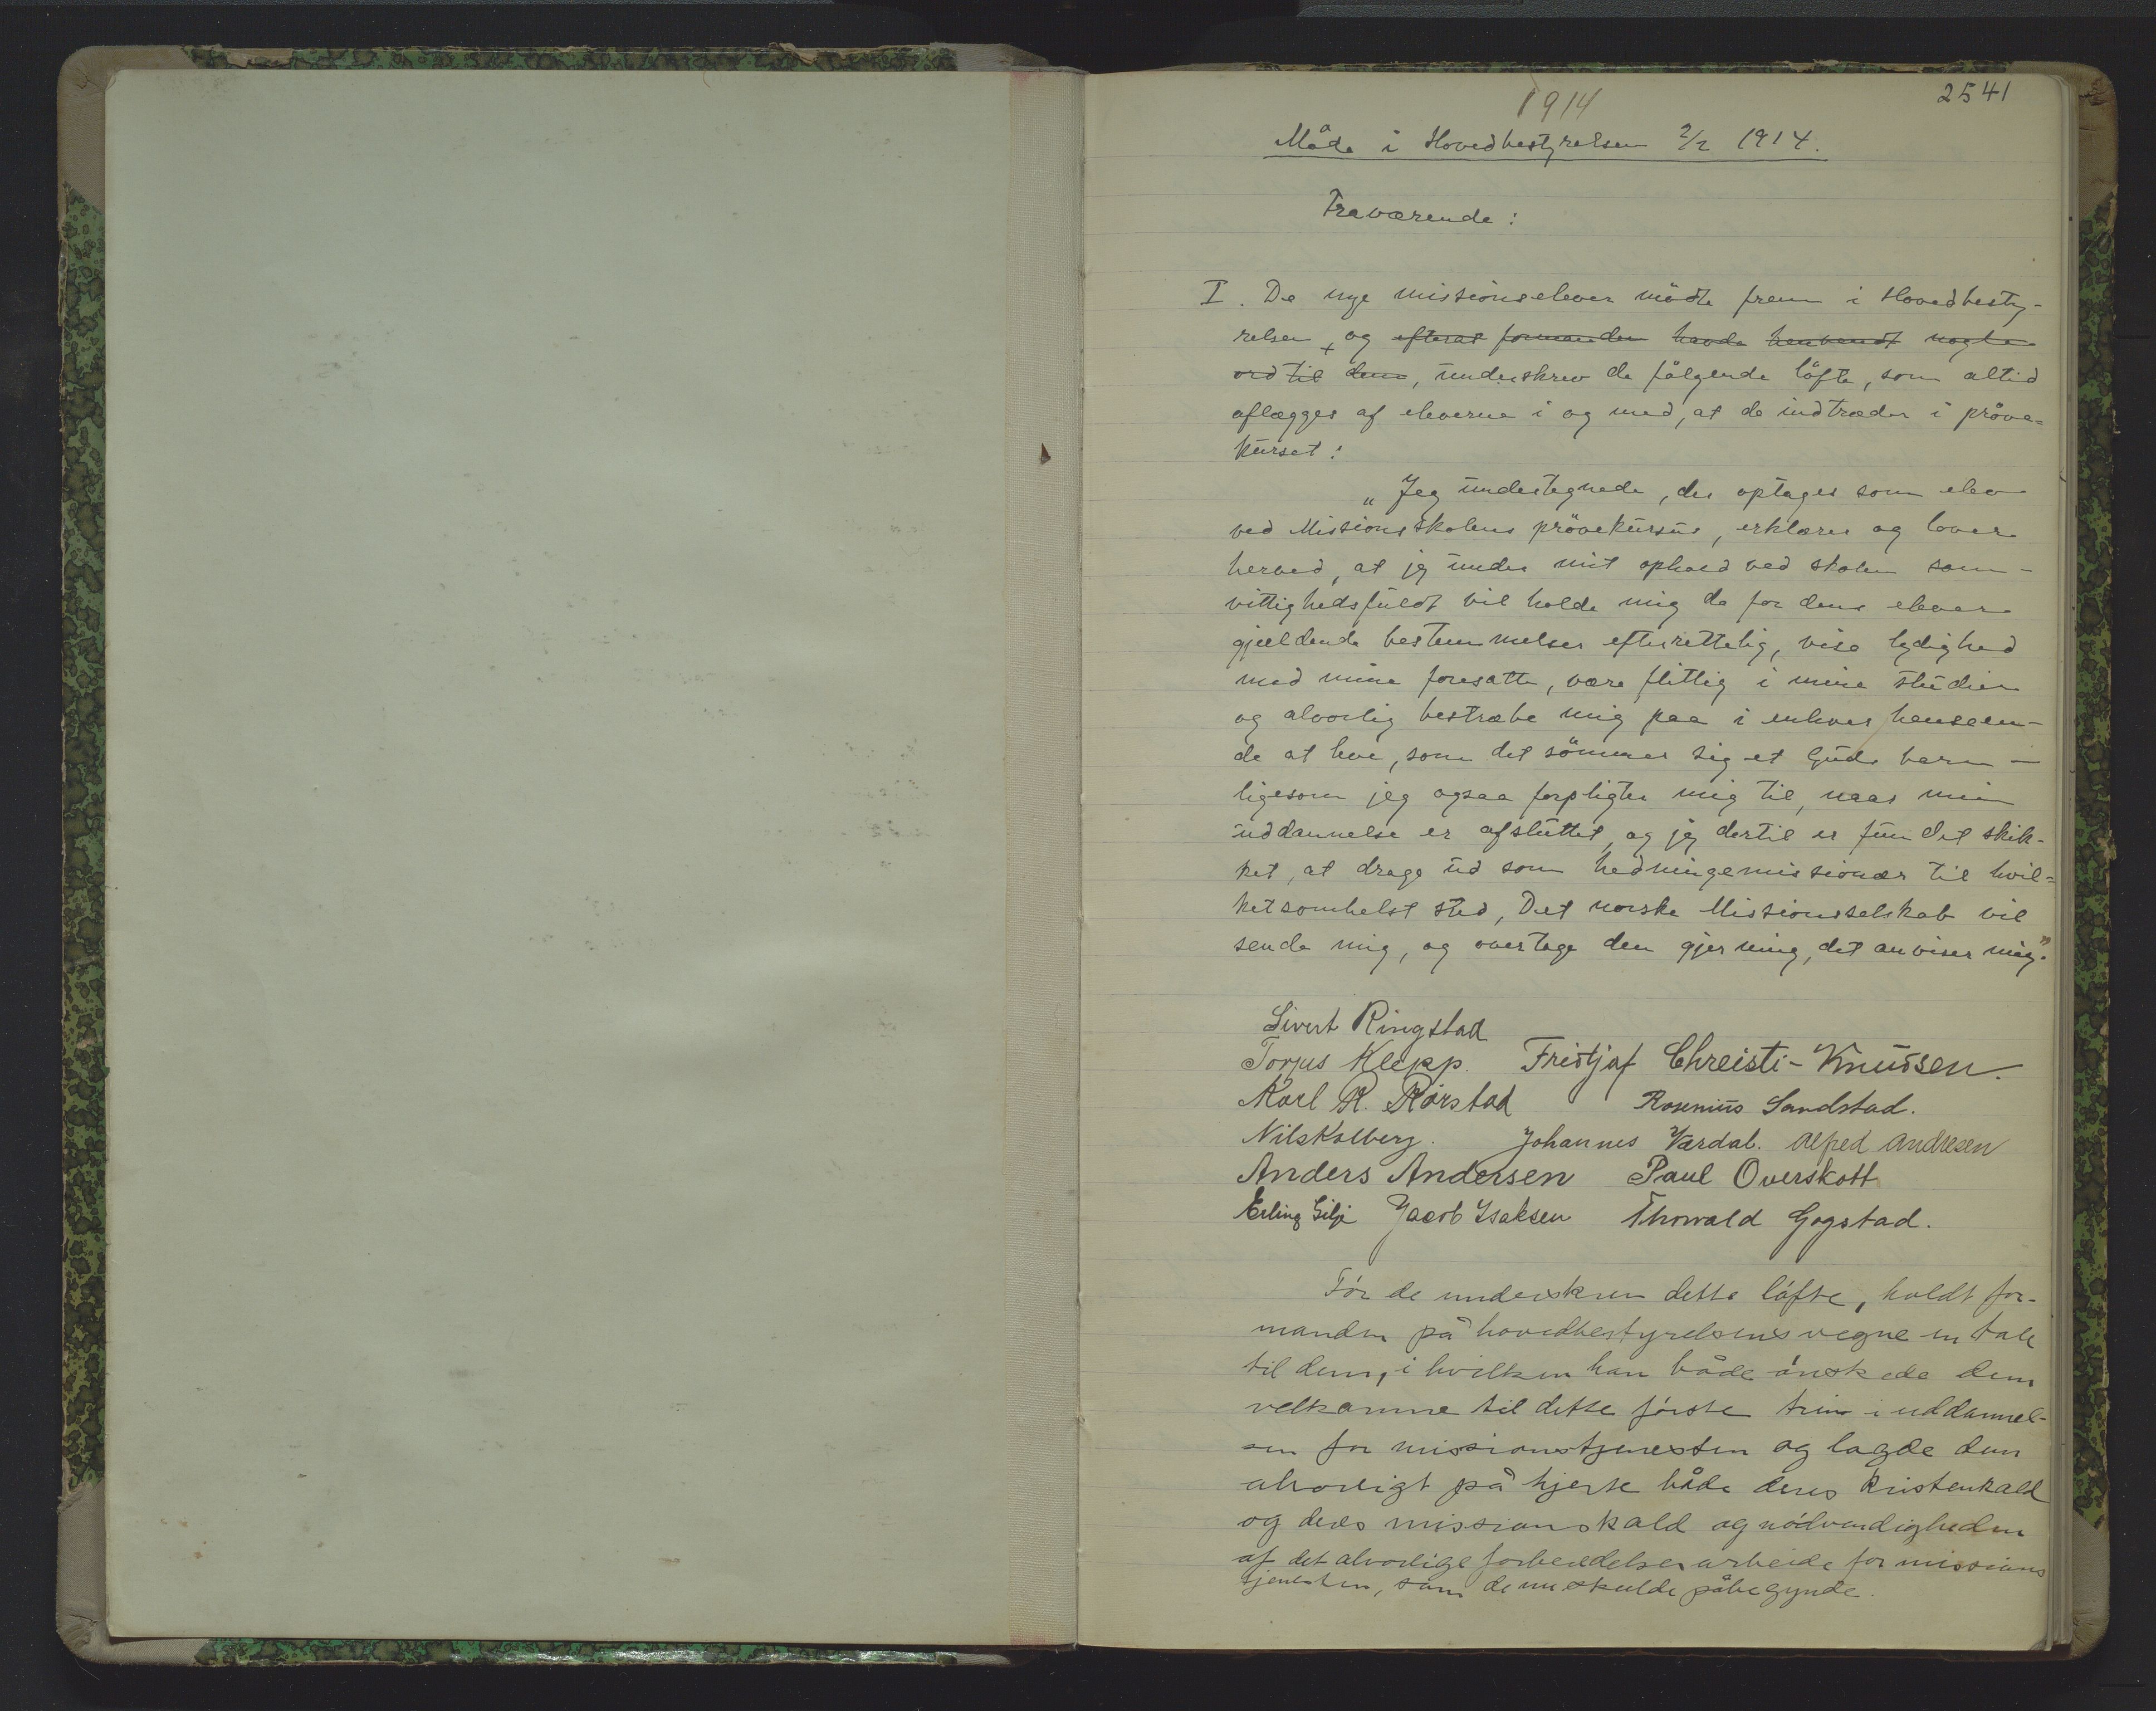 2541
1914
Møde i Hovedbestyrelsen 2/2 1914.
Fraværende:
I. De nye missionselever mödte frem i Hovedbesty-
relsen + og efterat formanden havde henvendt nogle
ord til dem, underskrev de fölgende löfte, som altid
aflægges af eleverne i og med, at de indtræder i pröve=
kurset:
„Jeg undertegnede, der optages som elev
ved Missionsskolens prövekursus, erklærer og lover
herved, at jeg under mit ophold ved skolen sam-
vittighedsfuldt vil holde mig de for dens elever
gjældende bestemmelser efterrettelig, vise lydighed
mod mine foresatte, være flittig i mine studier
og alvorlig bestræbe mig paa i enhver henseen-
de at leve, som det sömmer sig et Guds barn —
ligesom jeg ogsaa forpligter mig til, naar min
uddannelse er afsluttet, og jeg dertil er fundet skik-
ket, at drage ud som hedningemissionær til hvil=
ketsomhelst sted, Det norske Missionsselskab vil
sende mig, og overtage den gjerning, det anviser mig."
Sivert Ringstad
Torjus Klepp. Fridtjof Chreisti-Knudsen.
Karl R. Rørstad Rosenius Sandstad.
Nils Kolberg. JohannesVærdal. Alfred Andresen
Anders Andersen Paul Overskott
Erling Gilje Jacob Isaksen Thorvald Gogstad.
Før de underskrev dette løfte, holdt for-
manden på hovedbestyrelsens vegne en tale
til dem, i hvilken han både ønskede dem
velkomne til dette første trin i uddannel-
sen for missionstjenesten og lagde dem
alvorligt på hjerte både deres kristenkald
og deres missionskald og nødvendigheden
af det alvorlige forberedelsesarbeide for missions
tjenesten, som de nu skulde påbegynde.